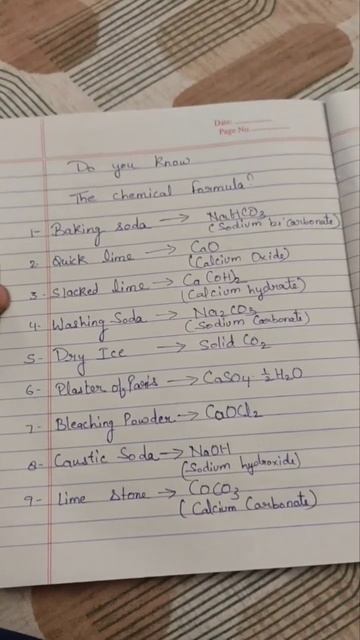 Date:
Page No.
Do you know
The chemical formula?
1- Baking soda → NaHCO3
(Sodium bi carbonate)
2- Quick lime → CaO
(Calcium Oxide)
3- Slacked lime → Ca(OH)2
(Calcium hydrate)
4- Washing Soda → Na2CO3
(Sodium Carbonate)
5- Dry Ice → Solid CO2
6- Plaster of Paris → CaSO4·½H2O
7- Bleaching Powder → CaOCl2
8- Caustic Soda → NaOH
(Sodium hydroxide)
9- Lime stone → COCO3
(Calcium Carbonate)